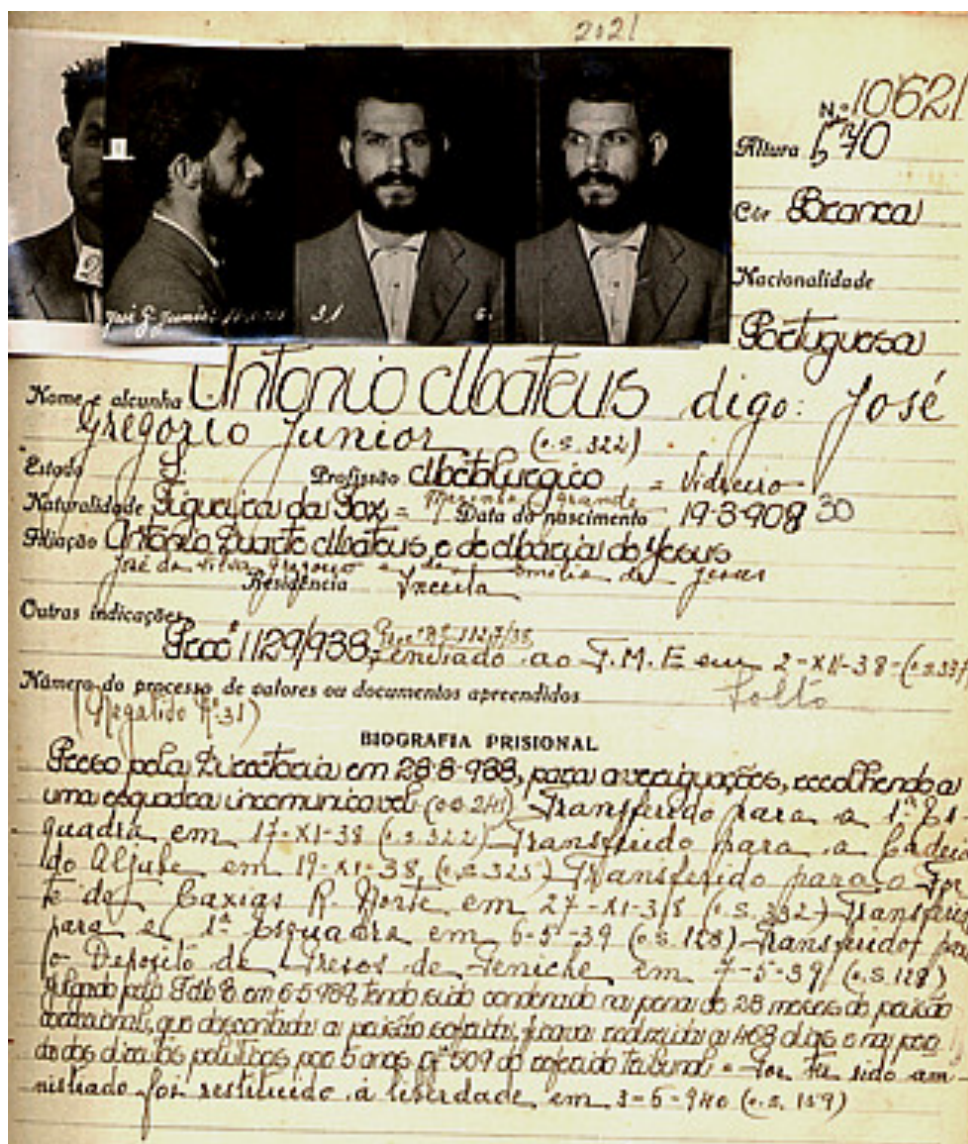 2021
N.º 10621
Altura 1,70
Côr Branca
Nacionalidade
Portuguesa
José G. Junior
31
Nome e alcunha António Mateus digo: José
Gregorio Junior (o.s. 322)
Estado S. Profissão Metalurgico = Vidreiro
Naturalidade Figueira da Foz = Marinha Grande Data do nascimento 19-3-908
Filiação António Duarte Mateus e de Maria de Jesus
José da Silva Gregorio e de Emelia de Jesus
Residência Incerta
Outras indicações
Procº 1129/938, enviado ao T.M.E em 2-XII-38-(o.s.337)
Número do processo de valores ou documentos apreendidos Solto
(Negativo Nº 31)
BIOGRAFIA PRISIONAL
Preso pela Directoria em 28-8-938, para averiguações, recolhendo a
uma esquadra incomunicavel (o.s. 241) Transferido para a 1.ª Es-
quadra em 17-XI-38 (o.s. 322) Transferido para a Cadeia
do Aljube em 19-XI-38, (o.s. 325) Transferido para o For-
te de Caxias R. Norte em 27-XI-38 (o.s. 332) Transferido
para a 1ª Esquadra em 6-5-39 (o.s. 128) Transferido para
o Depósito de Presos de Peniche em 7-5-39 (o.s. 128)
Julgado pelo em 6-5-939, tendo sido condenado na pena de 28 meses de prisão
correcional, que descontada a prisão sofrida, ficava reduzida a 468 dias e na perda
dos direitos politicos por 5 anos 509 do referido Tribunal = Por ter sido am-
nistiado foi restituido á liberdade em 3-6-940 (o.s. 159)